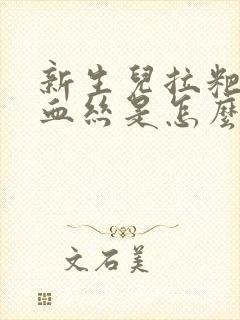 新生兒拉粑
血絲是怎麼
文石美